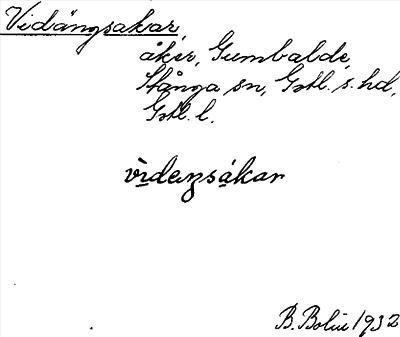 Vidängsakar,
åker, Gumbalde,
Stånga sn, Gotl. s. hd,
Gotl. l.
vìdeŋsákar
B. Bolin 1932